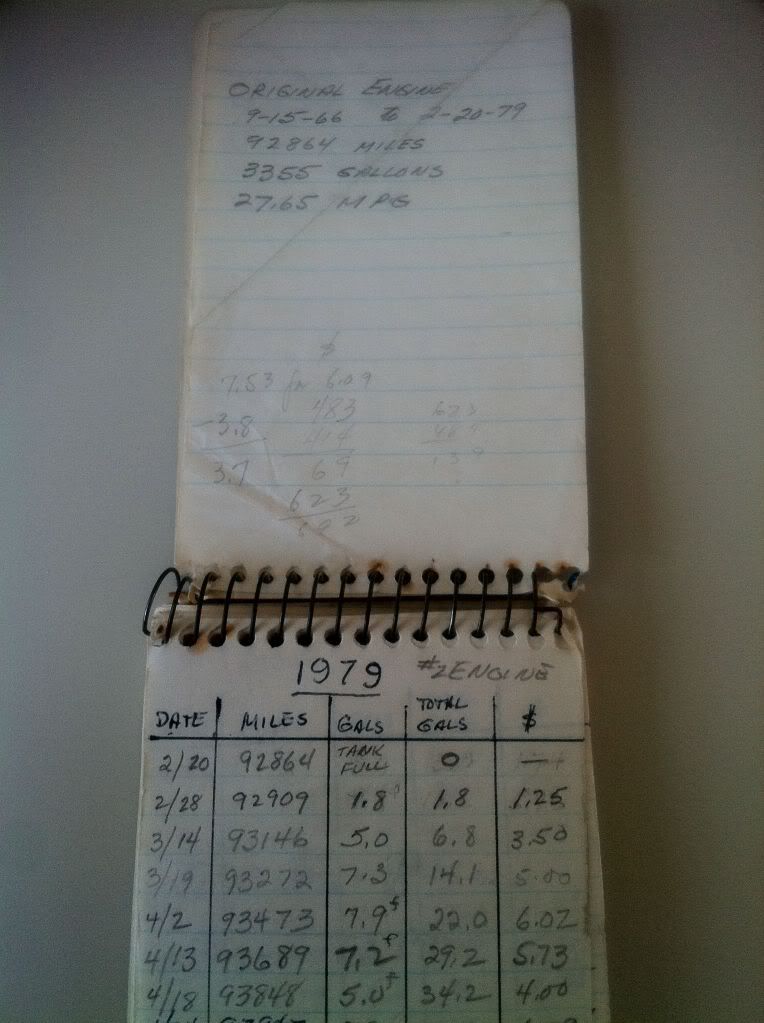 ORIGINAL ENGINE
9-15-66 to 2-20-79
92864 MILES
3355 GALLONS
27.65 MPG
$
7.53 for 6.09
483 623
-3.8 414
3.7 69
623
1979 #2 ENGINE
DATE MILES GALS TOTAL GALS $
2/20 92864 TANK FULL 0 —
2/28 92909 1.8 1.8 1.25
3/14 93146 5.0 6.8 3.50
3/19 93272 7.3 14.1 5.00
4/2 93473 7.9f 22.0 6.02
4/13 93689 7.2f 29.2 5.73
4/18 93848 5.0f 34.2 4.00